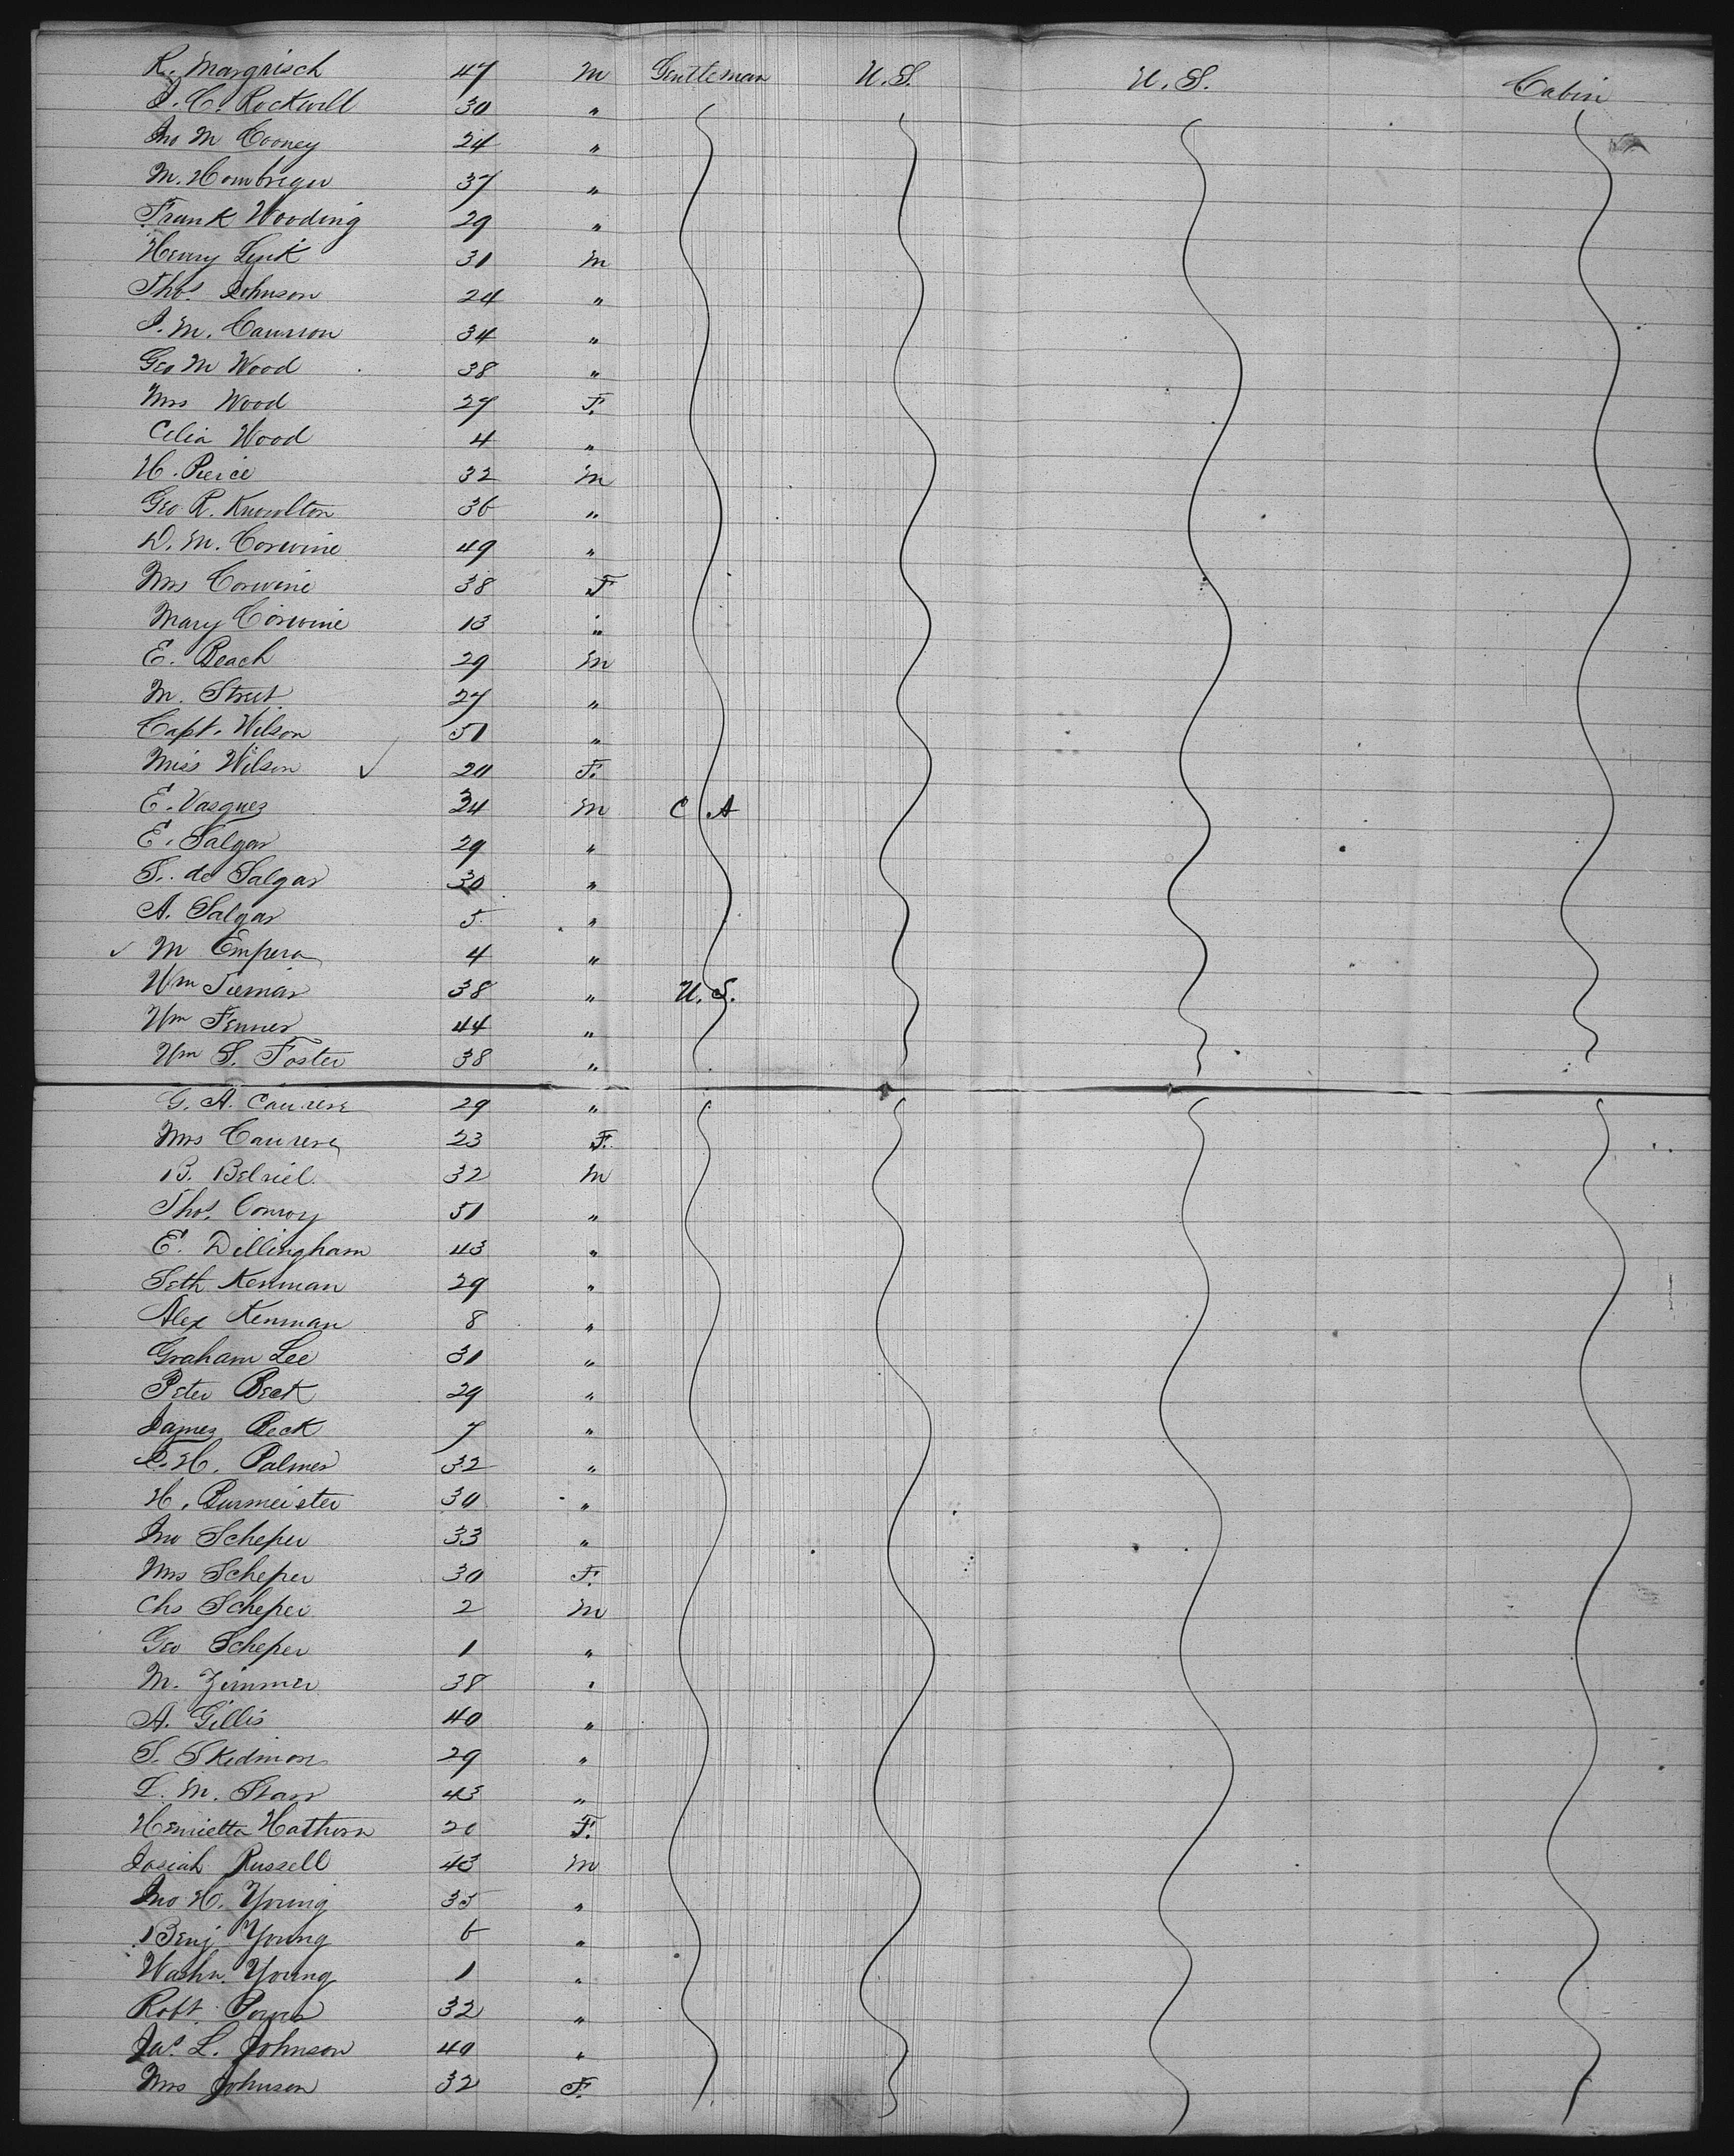 R. Margrisch 47 M Gentleman U.S. U.S. Cabin
J. C. Rockwell 30 "
Jno M Cooney 24 "
M. 37 "
Frank Wooding 29 "
Henry Link 31 M
Thos. Johnson 24 "
J. M. 34 "
Geo M Wood 38 "
Mrs Wood 27 F.
Celia Wood 4 "
H. Pierce 32 M
Geo R. Knowlton 36 "
D. M. Corwine 49 "
Mrs Corwine 38 F
Mary Corwine 13 "
E. Beach 29 M
M. Street 27 "
Capt. Wilson 51 "
Miss Wilson ✓ 20 F.
E. Vasquez 34 M C A
E. Salgar 29 "
S. de Salgar 30 "
A. Salgar 5 "
✓ M Empera 4 "
Wm 38 " U.S.
Wm Fenner 44 "
Wm S. Foster 38 "
G. A. 29 "
Mrs 23 F.
B. 32 M
Thos. Conroy 51 "
E. Dillingham 43 "
Seth Kenman 29 "
Alex Kenman 8 "
Graham Lee 31 "
Peter Beck 29 "
James Beck 7 "
H. Palmer 32 "
H. Burmeister 30 "
Jno Scheper 33 "
Mrs Scheper 30 F.
Chs Scheper 2 M
Geo Scheper 1 "
M. Zimmer 38 "
A. Gillis 40 "
S. Skidmore 29 "
L. M. Starr 43 "
Henrietta Hathorn 20 F.
Josiah Russell 43 M
Jno H. Young 35 "
Benj Young 6 "
Washn. Young 1 "
Robt. 32 "
Jas. L. Johnson 40 "
Mrs Johnson 32 F.